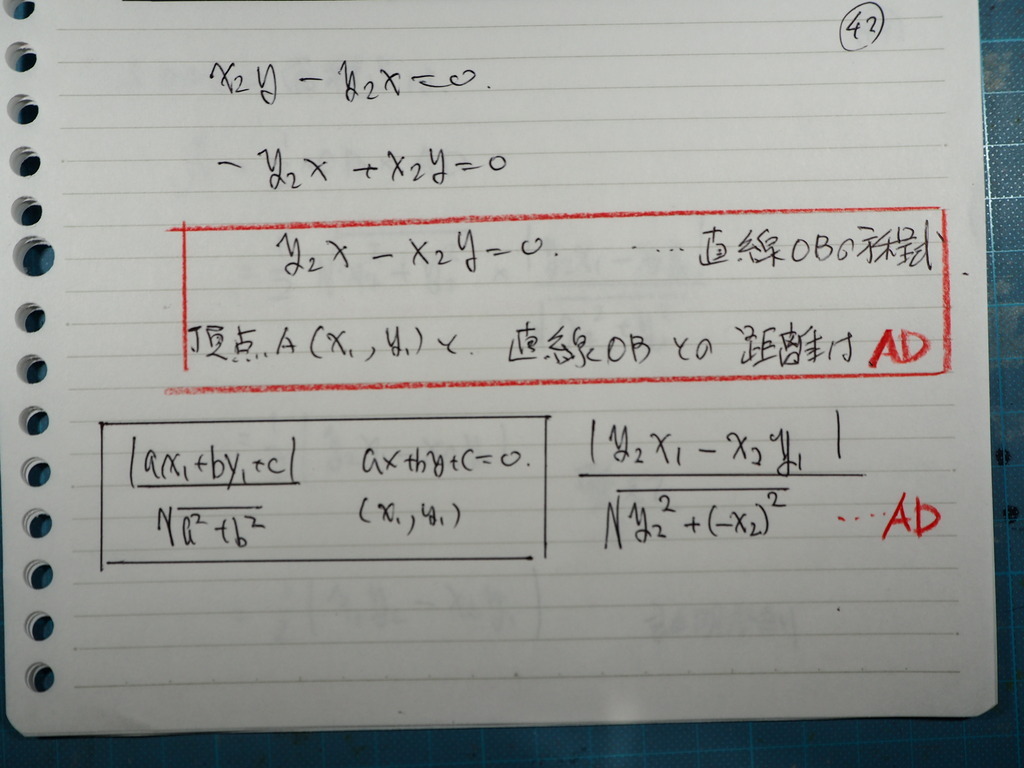 42
x₂y − y₂x = 0.
− y₂x + x₂y = 0
y₂x − x₂y = 0. ‥‥ 直線OBの方程式
頂点A(x₁, y₁)と. 直線OBとの距離は AD
|ax₁+by₁+c| / √(a²+b²) ax+by+c=0. (x₁, y₁)
|y₂x₁ − x₂y₁| / √(y₂² + (−x₂)²) ‥‥AD